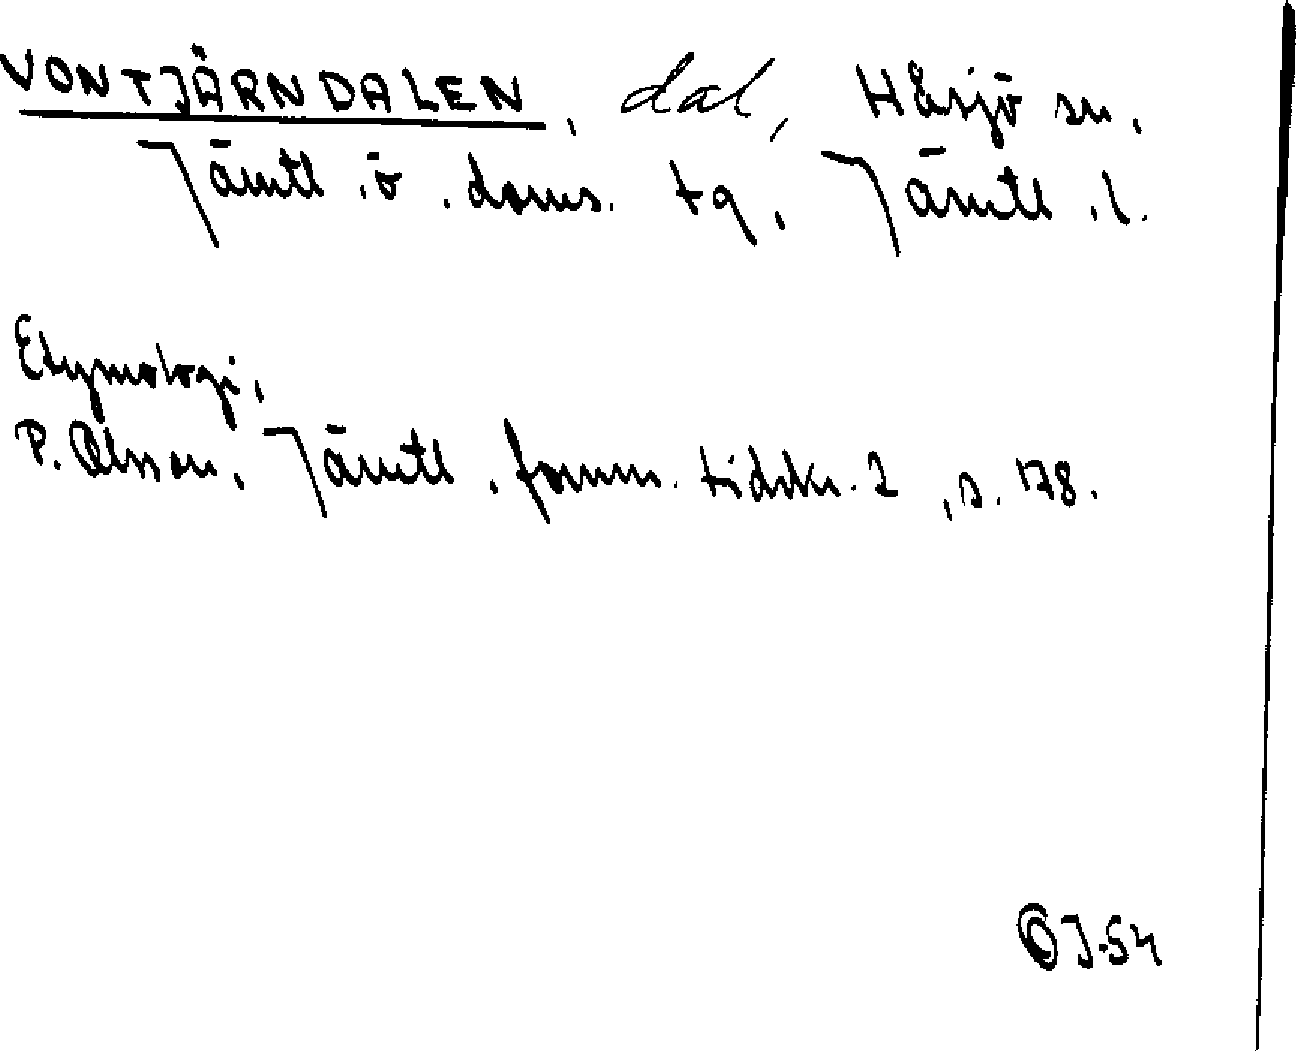 VONTJÄRNDALEN, dal, Håsjö sn,
Jämtl. ö. doms. tg, Jämtl. l.
Etymologi,
P. Olsson, Jämtl. fornm. tidskr. 2, s. 178.
OJ-54